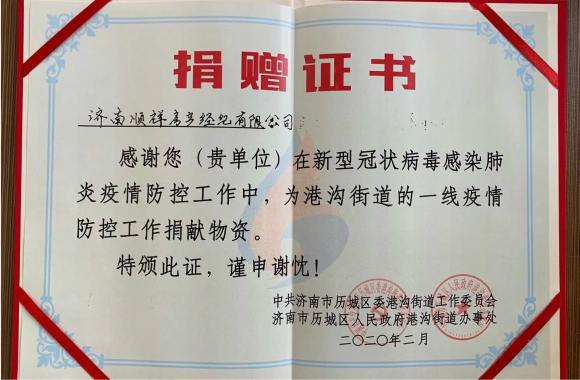 捐赠证书
济南顺祥房产经纪有限公司
感谢您（贵单位）在新型冠状病毒感染肺
炎疫情防控工作中，为港沟街道的一线疫情
防控工作捐献物资。
特颁此证，谨申谢忱！
中共济南市历城区委港沟街道工作委员会
济南市历城区人民政府港沟街道办事处
二〇二〇年二月